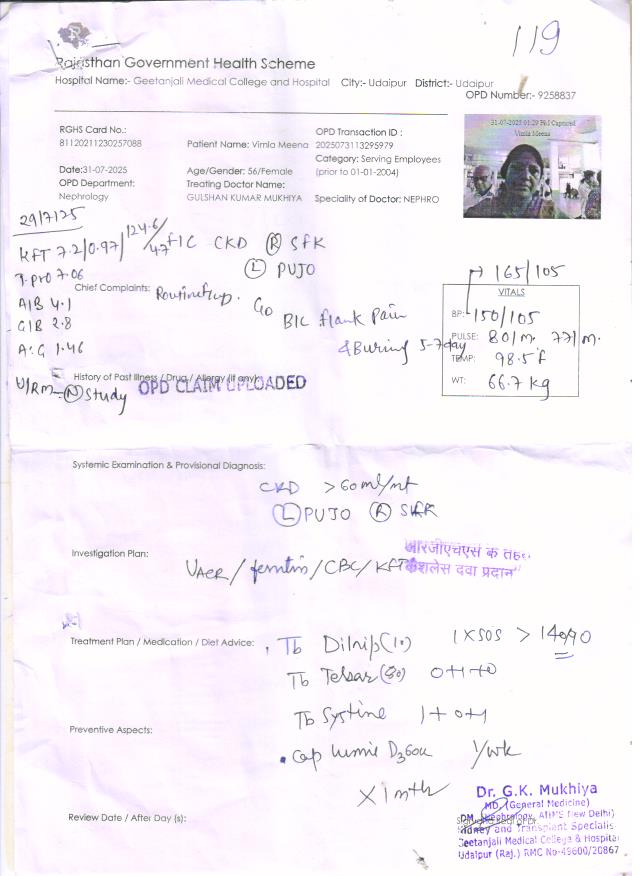 119
Rajasthan Government Health Scheme
Hospital Name:- Geetanjali Medical College and Hospital City:- Udaipur District:- Udaipur
OPD Number:- 9258837
RGHS Card No.:
81120211230257088
Patient Name: Vimla Meena
OPD Transaction ID :
2025073113295979
Category: Serving Employees
(prior to 01-01-2004)
31-07-2025 01:29 PM Captured
Vimla Meena
Date:31-07-2025
OPD Department:
Nephrology
Age/Gender: 56/Female
Treating Doctor Name:
GULSHAN KUMAR MUKHIYA
Speciality of Doctor: NEPHRO
29/7/25
KFT 7.2/0.97/124.6/4.7 CKD R SFK
L PUJO
T.Pro 7.06
A/B 4.1
G/B 2.8
A:G 1.46
Chief Complaints: Routine
B/L flank pain
5-7 day
165/105
VITALS
BP:- 150/105
PULSE: 80/m. 77/m.
TEMP: 98.5 f
WT: 66.7 kg
History of Past Illness / Drug / Allergy (if any):
U/RM N Study
OPD CLAIM UPLOADED
Systemic Examination & Provisional Diagnosis:
CKD >60ml/mt
L PUJO R
Investigation Plan:
UACR / ferritin / CBC / KFT
आरजीएचएस के तहत
कैशलेस दवा प्रदान
Treatment Plan / Medication / Diet Advice:
Tb Dilnip (10) 1 X SOS > 140/90
Tb Telsar (80) 0+1+0
Tb Systine 1+0+1
Preventive Aspects:
Cap D3 60k 1/wk
X 1 mth
Review Date / After Day (s):
Dr. G.K. Mukhiya
MD (General Medicine)
DM, Nephrology, AIIMS New Delhi)
Kidney and Transplant Specialis
Geetanjali Medical College & Hospital
Udaipur (Raj.) RMC No-49600/20867